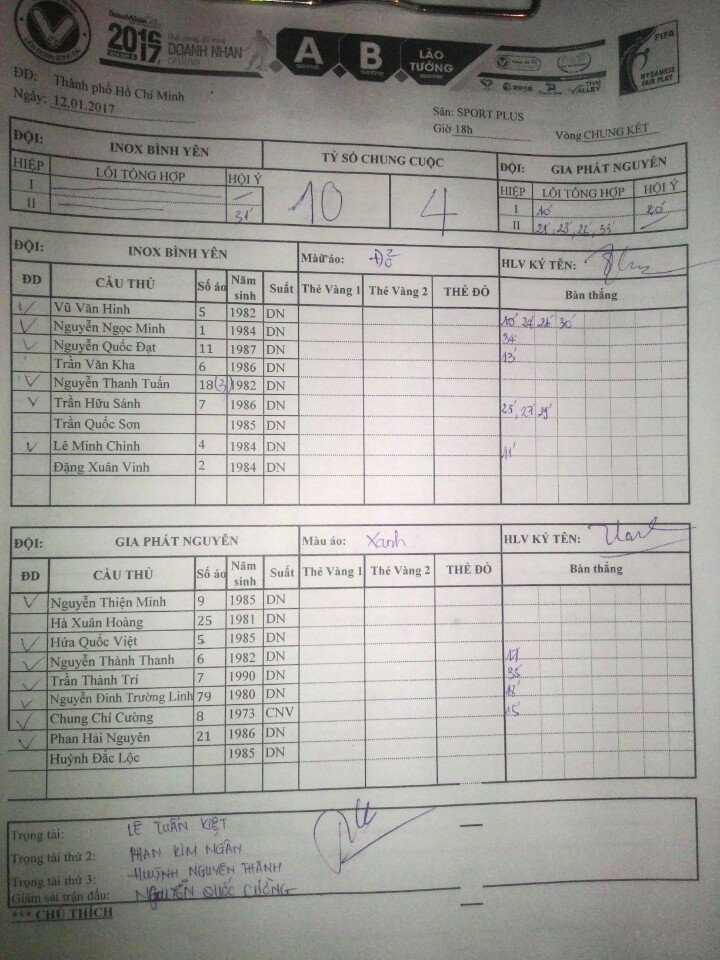 2016
2017
DOANH NHAN
online
A
B
LÃO TƯỚNG
THAI VALLEY
FIFA
MY GAME IS FAIR PLAY
ĐĐ: Thành phố Hồ Chí Minh
Ngày: 12.01.2017
Sân: SPORT PLUS
Giờ 18h
Vòng CHUNG KẾT
ĐỘI: INOX BÌNH YÊN
TỶ SỐ CHUNG CUỘC
ĐỘI: GIA PHÁT NGUYÊN
HIỆP LỖI TỔNG HỢP HỘI Ý
HIỆP LỖI TỔNG HỢP HỘI Ý
I
10 4
I 10' 20'
II 31'
II 21' 23', 26', 33'
ĐỘI: INOX BÌNH YÊN Màu áo: Đỏ HLV KÝ TÊN:
ĐD CẦU THỦ Số áo Năm sinh Suất Thẻ Vàng 1 Thẻ Vàng 2 THẺ ĐỎ Bàn thắng
Vũ Văn Hinh 5 1982 DN
Nguyễn Ngọc Minh 1 1984 DN 10' 26' 30'
Nguyễn Quốc Đạt 11 1987 DN 34'
Trần Văn Kha 6 1986 DN 13'
Nguyễn Thanh Tuấn 18 (3) 1982 DN
Trần Hữu Sánh 7 1986 DN 25', 27' 29'
Trần Quốc Sơn 1985 DN
Lê Minh Chinh 4 1984 DN 11'
Đặng Xuân Vinh 2 1984 DN
ĐỘI: GIA PHÁT NGUYÊN Màu áo: Xanh HLV KÝ TÊN:
ĐD CẦU THỦ Số áo Năm sinh Suất Thẻ Vàng 1 Thẻ Vàng 2 THẺ ĐỎ Bàn thắng
Nguyễn Thiện Minh 9 1985 DN
Hà Xuân Hoàng 25 1981 DN
Hứa Quốc Việt 5 1985 DN
Nguyễn Thành Thanh 6 1982 DN 17'
Trần Thành Trí 7 1990 DN 35'
Nguyễn Đình Trường Linh 79 1980 DN 18'
Chung Chí Cường 8 1973 CNV 15'
Phan Hải Nguyên 21 1986 DN
Huỳnh Đắc Lộc 1985 DN
Trọng tài: LÊ TUẤN KIỆT
Trọng tài thứ 2: PHAN KIM NGÂN
Trọng tài thứ 3: HUỲNH NGUYÊN THÀNH
Giám sát trận đấu: NGUYỄN QUỐC CƯỜNG
*** CHÚ THÍCH